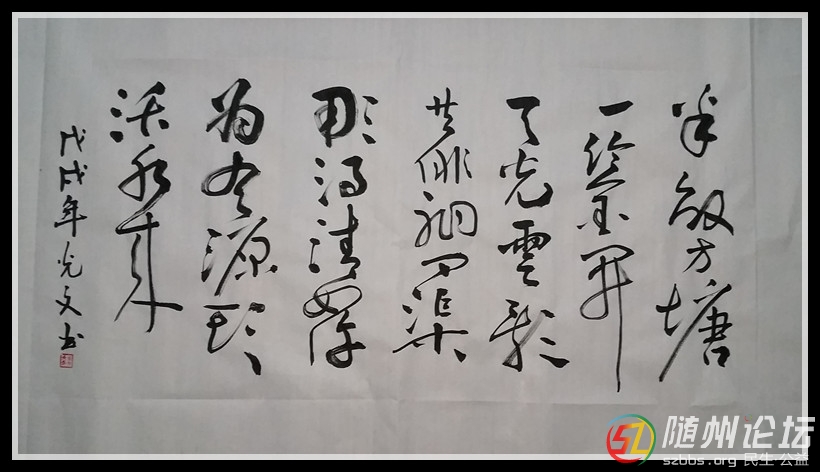 半畝方塘
一鉴開
天光雲影
共徘徊问渠
那得清如许
为有源头
活水来
戊戌年光文书
随州论坛
szbbs.org 民生·公益